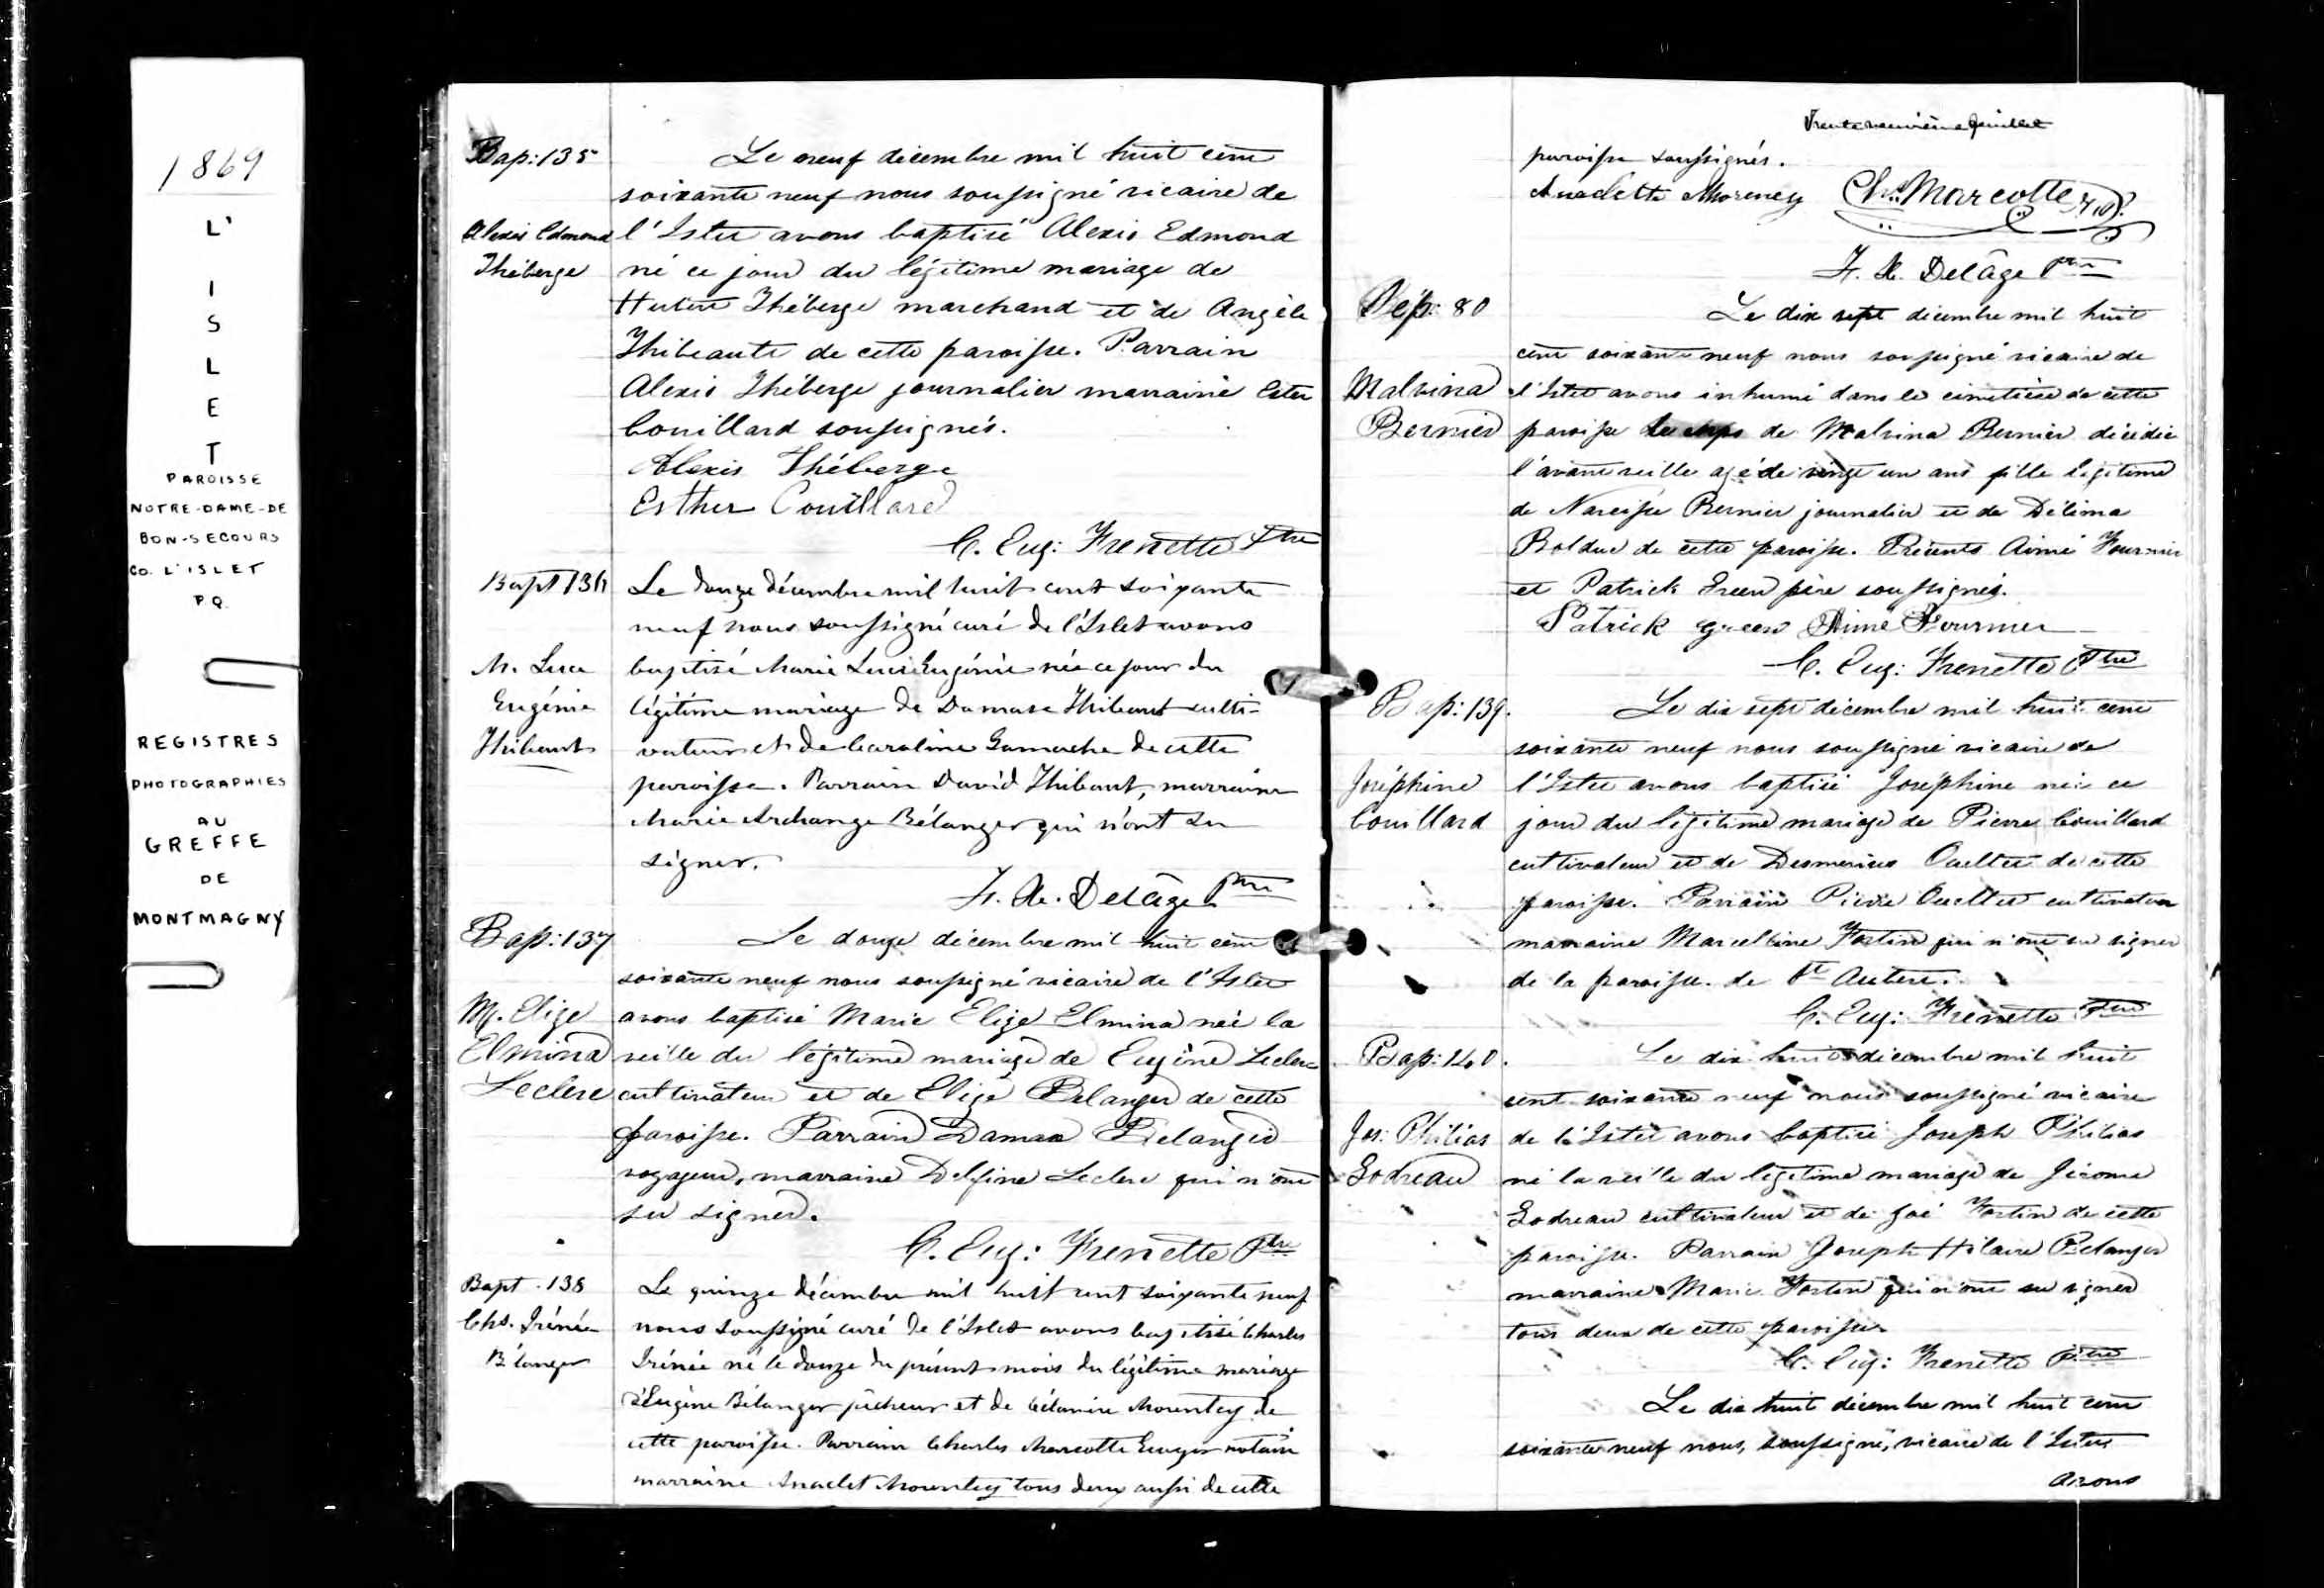 1869
L'
I
S
L
E
T
PAROISSE
NOTRE-DAME-DE
BON-SECOURS
CO. L'ISLET
P.Q.
REGISTRES
PHOTOGRAPHIES
AU
GREFFE
DE
MONTMAGNY
Bap: 135
Alexis Edmond
Théberge
Le neuf décembre mil huit cent
soixante neuf nous soussigné vicaire de
l'Islet avons baptisé Alexis Edmond
né ce jour du légitime mariage de
Théberge marchand et de Angèle
Thibeault de cette paroisse. Parrain
Alexis Théberge journalier marraine Ester
Couillard soussignés.
Alexis Théberge
Esther Couillard
C. Eug: Frenette Ptre
Bapt 136
M. Luce
Eugénie
Thibault
Le douze décembre mil huit cent soixante
neuf nous soussigné curé de l'Islet avons
baptisé Marie Luce Eugénie née ce jour du
légitime mariage de Damase Thibault culti-
vateur et de Caroline Gamache de cette
paroisse. Parrain David Thibault, marraine
Marie Archange Bélanger qui n'ont su
signer.
F. X. Delâge Ptre
Bap: 137
M. Elize
Elmina
Leclerc
Le douze décembre mil huit cent
soixante neuf nous soussigné vicaire de l'Islet
avons baptisé Marie Elize Elmina née la
veille du légitime mariage de Eugène Leclerc
cultivateur et de Elize Belanger de cette
paroisse. Parrain Damase Belanger
voyageur, marraine Delfine Leclerc qui n'ont
su signer.
C. Eug: Frenette Ptre
Bapt. 138
Chs. Irénée
Bélanger
Le quinze décembre mil huit cent soixante neuf
nous soussigné curé de l'Islet avons baptisé Charles
Irénée né le douze du présent mois du légitime mariage
d'Eugène Bélanger pêcheur et de
cette paroisse. Parrain Charles Marcotte Ecuyer notaire
marraine Anaclet tous deux aussi de cette
Trente neuvième feuillet
paroisse soussignés.
Anaclette Ch: Marcotte N.P.
F. X. Delâge Ptre
Sép: 80
Malvina
Bernier
Le dix sept décembre mil huit
cent soixante neuf nous soussigné vicaire de
l'Islet avons inhumé dans le cimetière de cette
paroisse le corps de Malvina Bernier décédée
l'avant veille agée de vingt un ans fille légitime
de Narcisse Bernier journalier et de Délima
Bolduc de cette paroisse. Présents Aimé Fournier
et Patrick Green père soussignés.
Patrick Green Aimé Fournier
C. Eug: Frenette Ptre
Bap: 139.
Joséphine
Couillard
Le dix sept décembre mil huit cent
soixante neuf nous soussigné vicaire de
l'Islet avons baptisé Joséphine née ce
jour du légitime mariage de Pierre Couillard
cultivateur et de Ouellet de cette
paroisse. Parrain Pierre Ouellet cultivateur
marraine Marcelline Fortin qui n'ont su signer
de la paroisse de St Aubert.
C. Eug: Frenette Ptre
Bap: 140.
Jos: Philias
Godreau
Le dix huit décembre mil huit
cent soixante neuf nous soussigné vicaire
de l'Islet avons baptisé Joseph Philias
né la veille du légitime mariage de Jérome
Godreau cultivateur et de Zoé Fortin de cette
paroisse. Parrain Joseph Hilaire Belanger
marraine Marie Fortin qui n'ont su signer
tous deux de cette paroisse
C. Eug: Frenette Ptre
Le dix huit décembre mil huit cent
soixante neuf nous, soussigné, vicaire de l'Islet
avons